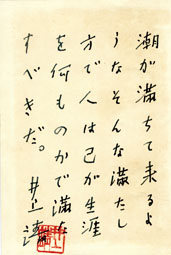 潮が満ちて来るよ
うなそんな満たし
方で人は己が生涯
を何ものかで満た
すべきだ。
井上靖